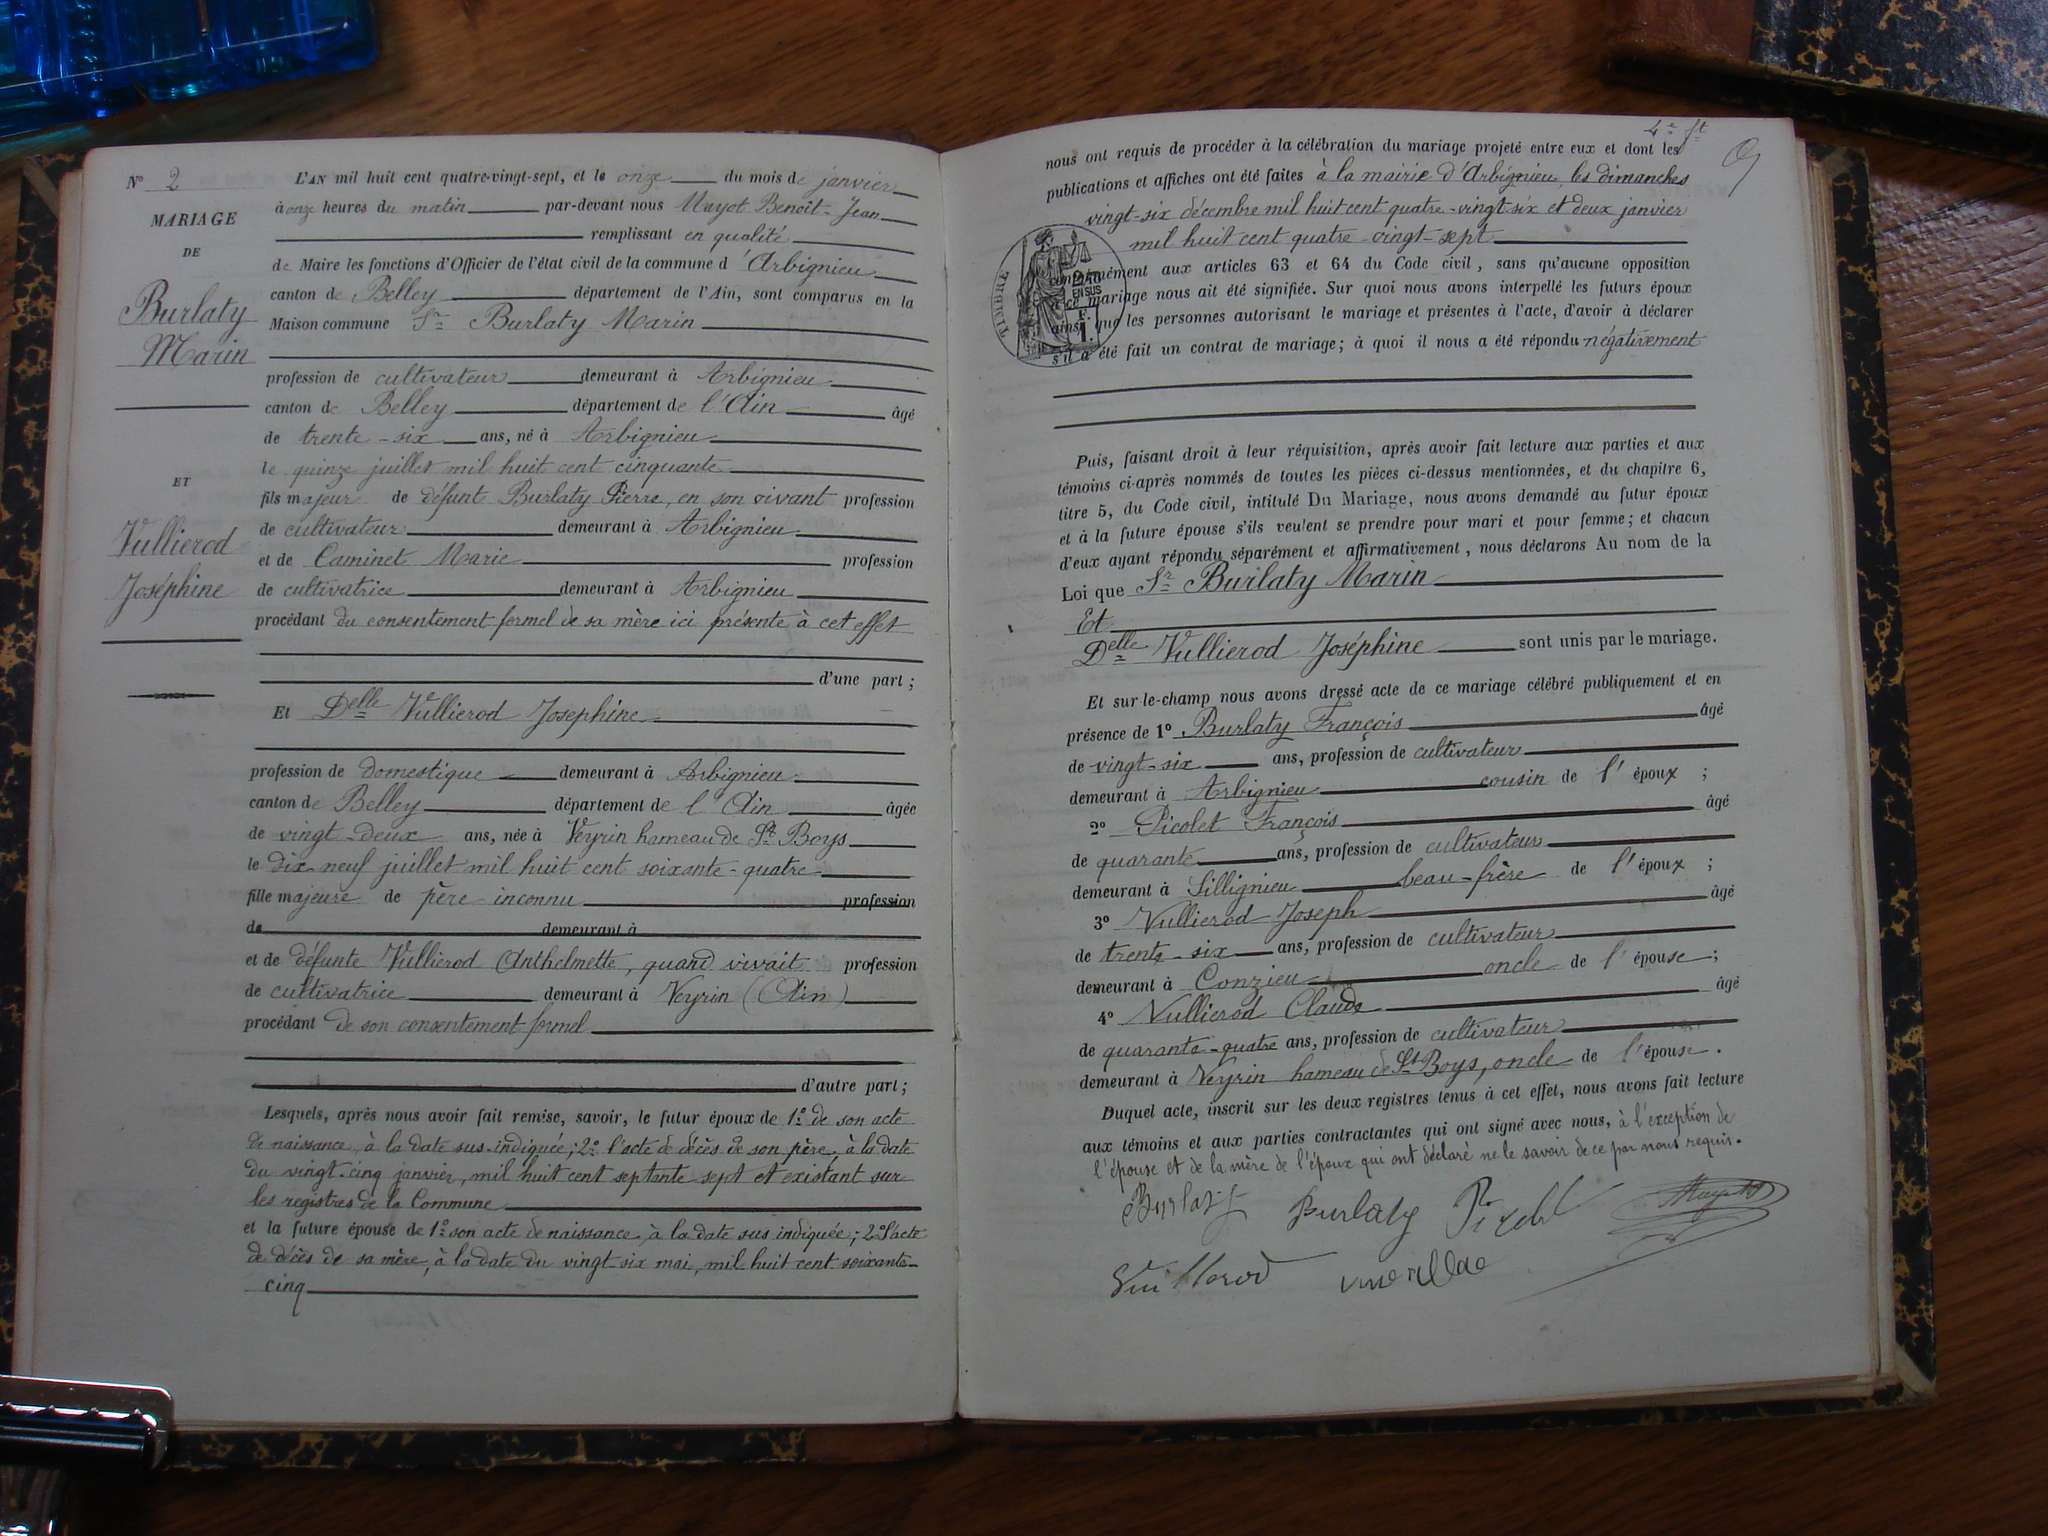 Nº 2
MARIAGE
DE
Burlaty
Marin
ET
Vullierod
Joséphine
L'AN mil huit cent quatre-vingt-sept, et le onze du mois de janvier
à onze heures du matin par-devant nous Mayot Benoît-Jean
remplissant en qualité
de Maire les fonctions d'Officier de l'état civil de la commune d'Arbignieu
canton de Belley département de l'Ain, sont comparus en la
Maison commune Sr Burlaty Marin
profession de cultivateur demeurant à Arbignieu
canton de Belley département de l'Ain âgé
de trente-six ans, né à Arbignieu
le quinze juillet mil huit cent cinquante
fils majeur de défunt Burlaty Pierre, en son vivant profession
de cultivateur demeurant à Arbignieu
et de Caminet Marie profession
de cultivatrice demeurant à Arbignieu
procédant du consentement formel de sa mère ici présente à cet effet
d'une part ;
Et Delle Vullierod Josephine
profession de domestique demeurant à Arbignieu
canton de Belley département de l'Ain âgée
de vingt-deux ans, née à Veyrin hameau de St Boys
le dix neuf juillet mil huit cent soixante-quatre
fille majeure de père inconnu profession
de demeurant à
et de défunte Vullierod Anthelmette, quand vivait profession
de cultivatrice demeurant à Veyrin (Ain)
procédant de son consentement formel
d'autre part ;
Lesquels, après nous avoir fait remise, savoir, le futur époux de 1º de son acte
de naissance, à la date sus-indiquée ; 2º l'acte de décès de son père, à la date
du vingt-cinq janvier, mil huit cent septante sept et existant sur
les registres de la Commune
et la future épouse de 1º son acte de naissance, à la date sus indiquée ; 2º l'acte
de décès de sa mère, à la date du vingt-six mai, mil huit cent soixante-
cinq
4e ft
nous ont requis de procéder à la célébration du mariage projeté entre eux et dont les
publications et affiches ont été faites à la mairie d'Arbignieu, les dimanches
vingt-six décembre mil huit cent quatre-vingt-six et deux janvier
mil huit cent quatre-vingt-sept
TIMBRE
EN SUS
conformément aux articles 63 et 64 du Code civil, sans qu'aucune opposition
à ce mariage nous ait été signifiée. Sur quoi nous avons interpellé les futurs époux
ainsi que les personnes autorisant le mariage et présentes à l'acte, d'avoir à déclarer
s'il a été fait un contrat de mariage ; à quoi il nous a été répondu négativement
Puis, faisant droit à leur réquisition, après avoir fait lecture aux parties et aux
témoins ci-après nommés de toutes les pièces ci-dessus mentionnées, et du chapitre 6,
titre 5, du Code civil, intitulé Du Mariage, nous avons demandé au futur époux
et à la future épouse s'ils veulent se prendre pour mari et pour femme ; et chacun
d'eux ayant répondu séparément et affirmativement, nous déclarons Au nom de la
Loi que Sr Burlaty Marin
Et
Delle Vullierod Joséphine sont unis par le mariage.
Et sur-le-champ nous avons dressé acte de ce mariage célébré publiquement et en
présence de 1º Burlaty François âgé
de vingt-six ans, profession de cultivateur
demeurant à Arbignieu cousin de l'époux ;
2º Picolet François âgé
de quarante ans, profession de cultivateur
demeurant à Sillignieu beau-frère de l'époux ;
3º Vullierod Joseph âgé
de trente-six ans, profession de cultivateur
demeurant à Conzieu oncle de l'épouse ;
4º Vullierod Claude âgé
de quarante-quatre ans, profession de cultivateur
demeurant à Veyrin hameau de St Boys, oncle de l'épouse.
Duquel acte, inscrit sur les deux registres tenus à cet effet, nous avons fait lecture
aux témoins et aux parties contractantes qui ont signé avec nous, à l'exception de
l'épouse et de la mère de l'époux qui ont déclaré ne le savoir de ce par nous requis.
Burlaty Burlaty Mayot
Vuillerod